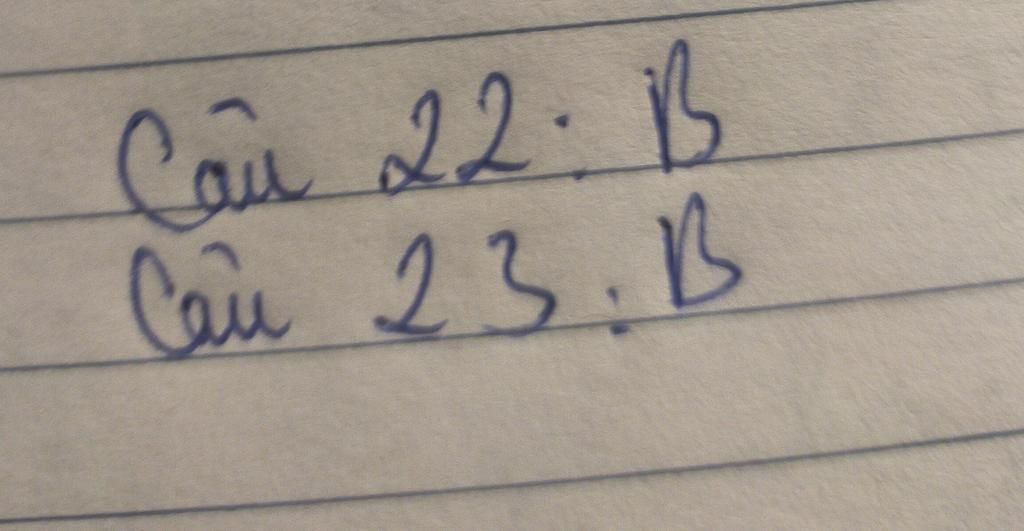 Câu 22: B
Câu 23: B